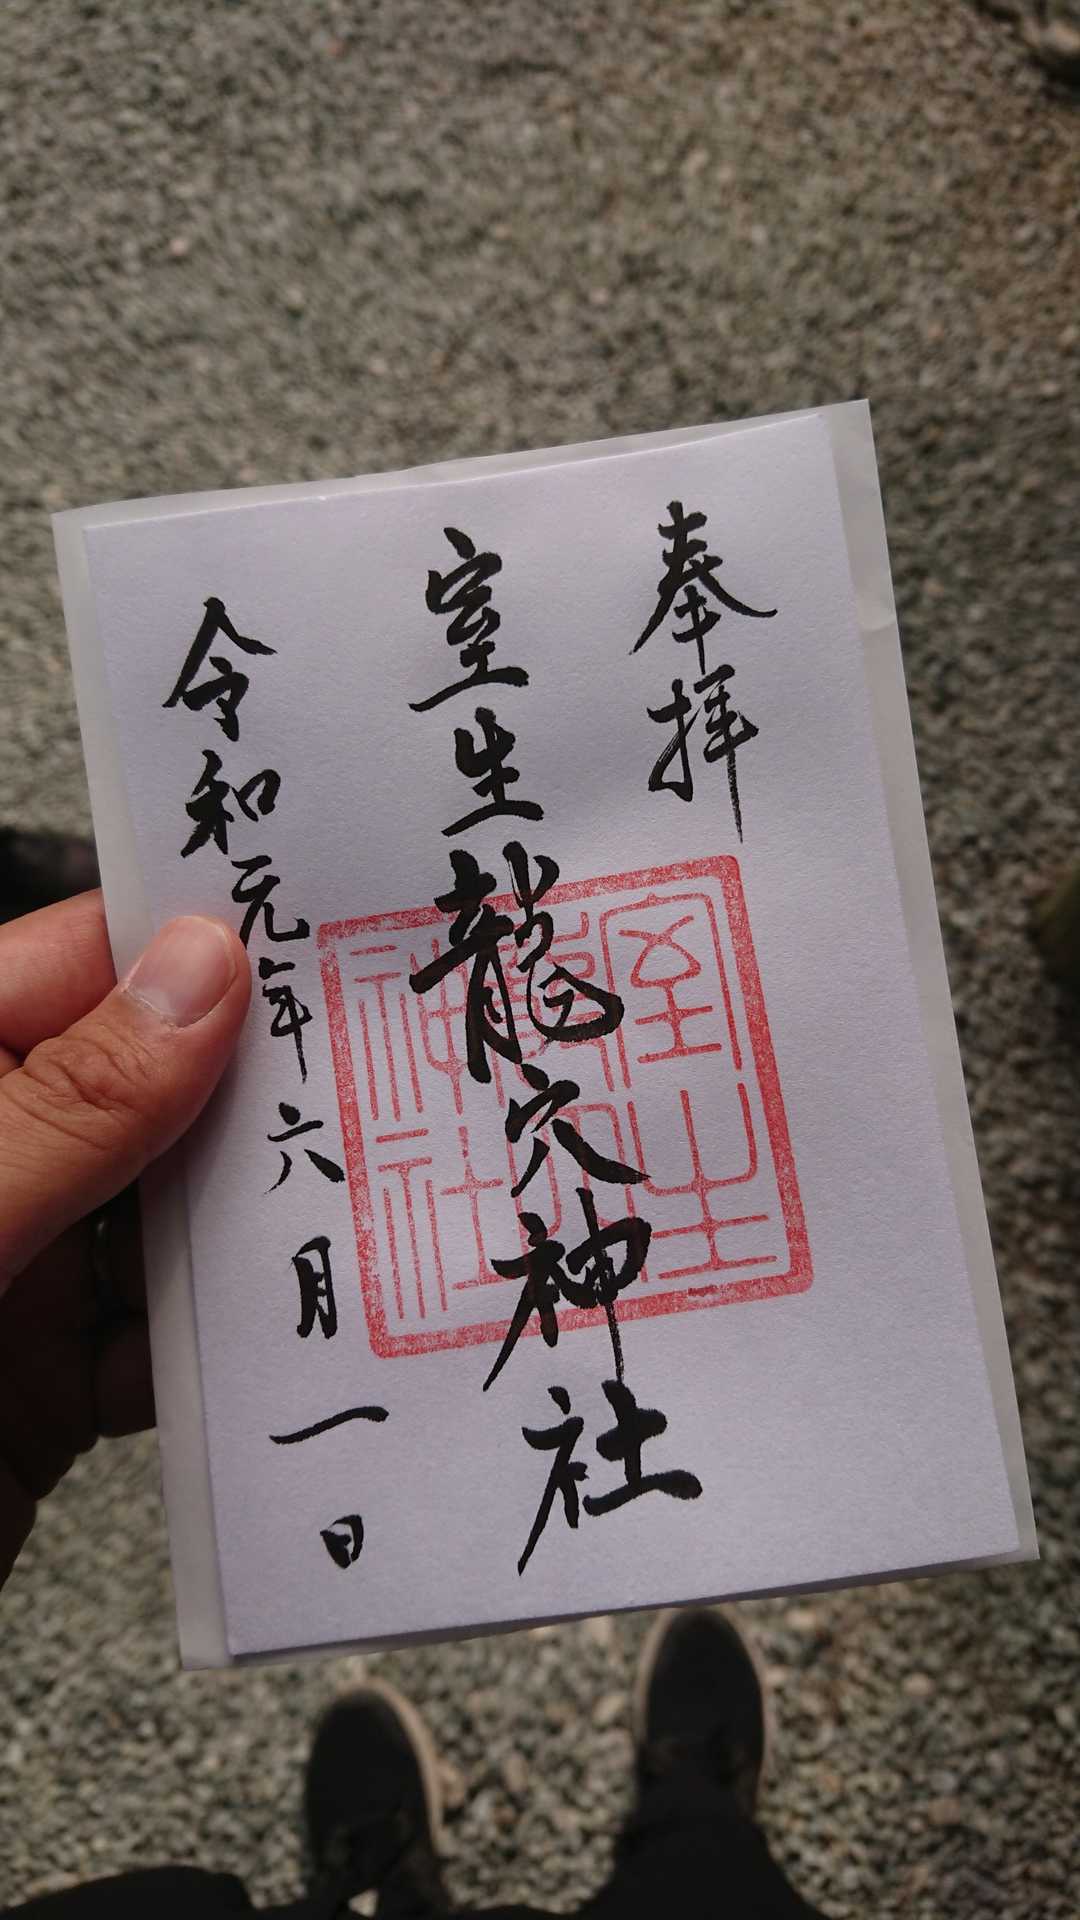 奉拝
室生龍穴神社
令和元年六月一日
室生
龍穴
神社